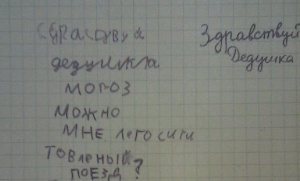 Здравствуй
Дедушка
дедушка
мороз
можно
мне лего сити
товарный
поезд?